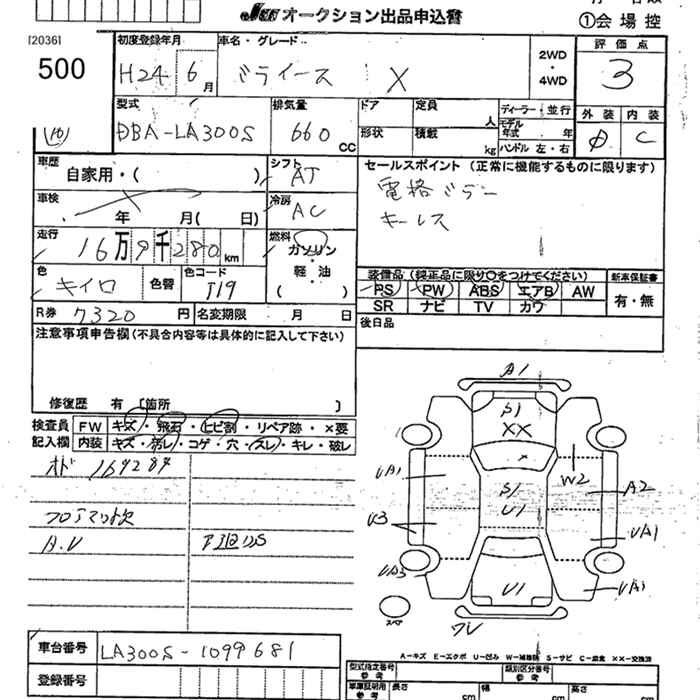 JU オークション出品申込書
①会場控
[2036]
500
初度登録年月
H24 6月
車名・グレード
ミライース X
2WD
・
4WD
評価点
3
型式
DBA-LA300S
排気量
660 CC
ドア
定員
人
形状
積載
kg
ディーラー・並行
モデル年式 年
ハンドル 左・右
外装 内装
C
車歴
自家用・( )
シフト
AT
セールスポイント (正常に機能するものに限ります)
電格ミラー
キーレス
車検
年 月( 日)
冷房
AC
走行
16万9千280km
燃料
ガソリン
・
軽・油
( )
色
キイロ
色替
色コード
T19
装備品 (純正品に限り○をつけてください)
PS PW ABS エアB AW
SR ナビ TV カワ
新車保証書
有・無
R券 7320円
名変期限 月 日
後日品
注意事項申告欄(不具合内容等は具体的に記入して下さい)
修復歴 有 [箇所 ]
検査員
記入欄
FW キズ・飛石・ヒビ割・リペア跡・×要
内装 キズ・汚レ・コゲ・穴・スレ・キレ・破レ
フロアマット欠
A.V
A1
S1
XX
UA1
W2
S1
U1
A2
U3
UA1
UA3
U1
UA1
スペア
A-キズ E-エクボ U-凹み W-補修跡 S-サビ C-腐食 XX-交換済
車台番号 LA300S-1099681
登録番号
型式指定番号
参考
類別区分番号
参考
車庫証明用
参考
長さ cm
幅 cm
高さ cm